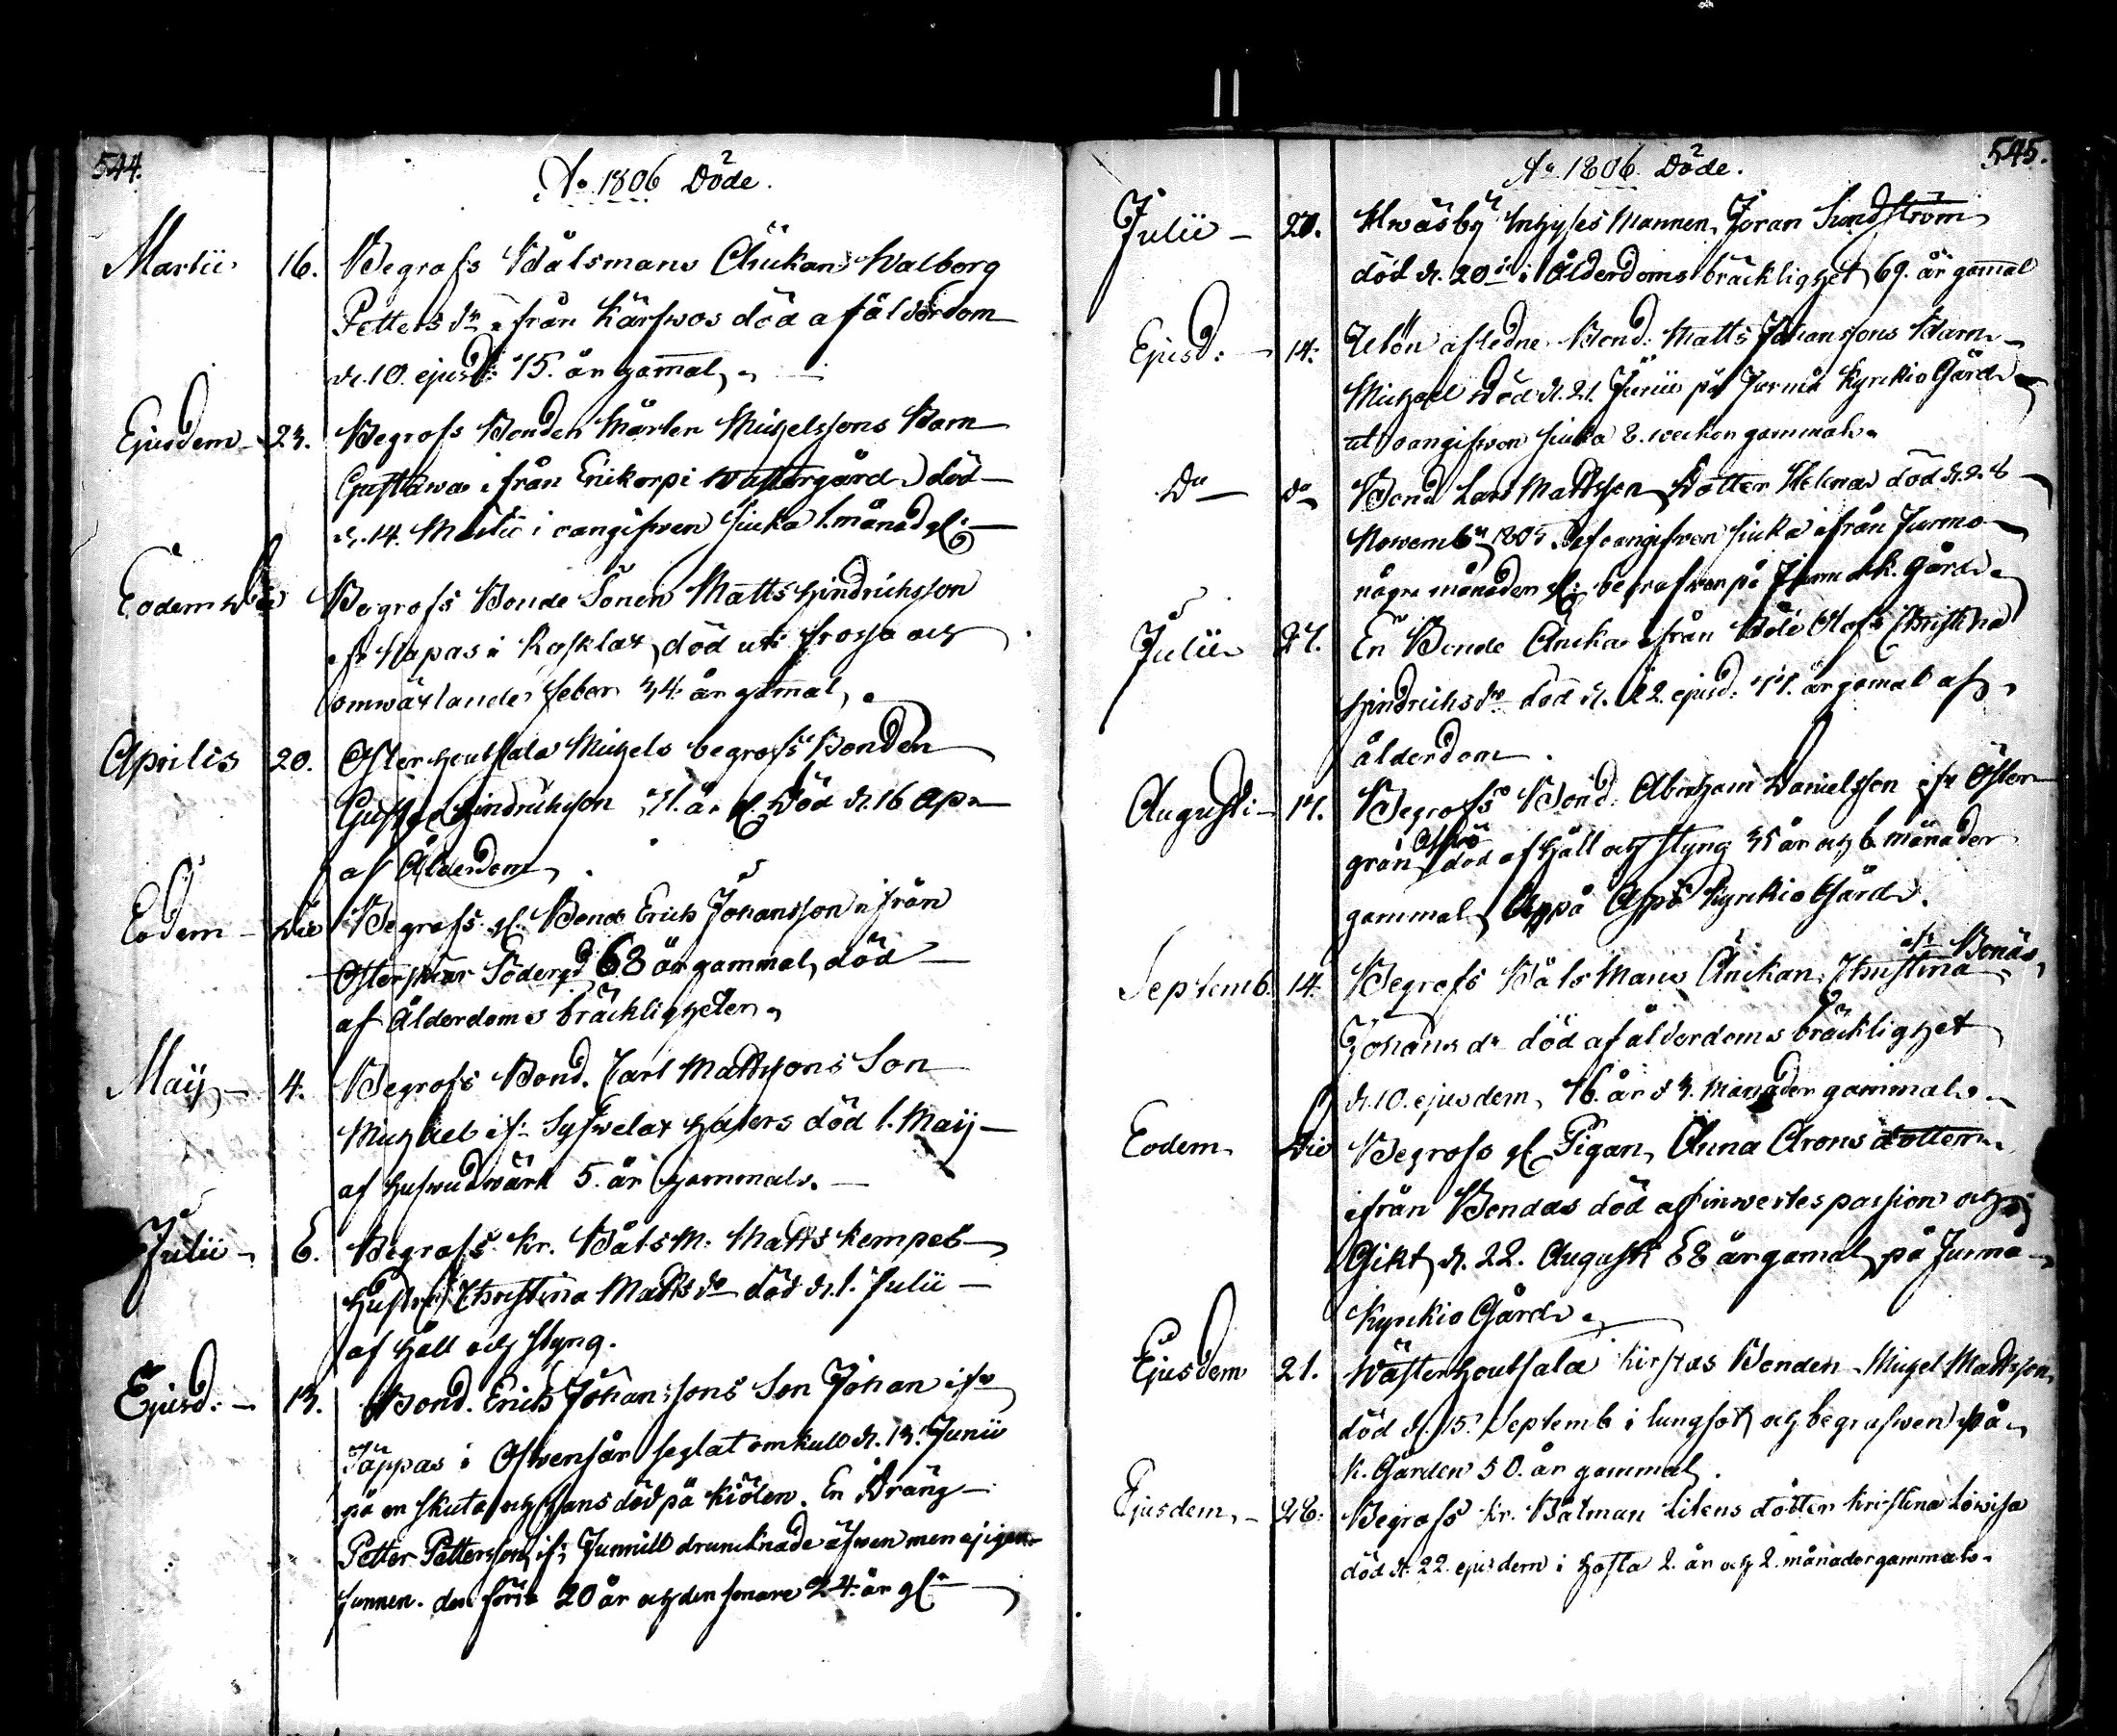 544.
Ao 1806 Döde.
Martii 16. Begrofs Båtsmans Änckan Walborg
Petters dr ifrån Kärfwos död af ålderdom
d. 10. ejusd: 75. år gammal
Ejusdem 23. Begrofs Bonden Mårten Michelssons Barn
Gustawa ifrån Enikorpi Wästergård död
d. 14. Martii i oangifwen siuka 1. månad gl:
Eodem die Begrofs Bonde Sonen Matts Hindrichsson
ifr Napas i Rosklax, död uti frossa och
omwäxlande feber 34. år gammal,
Aprilis 20. Österhoutsala Michels begrofs Bonden
Gust. Hindrichsson 71. år gl. Död d. 16 Apr
af Ålderdom
Eodem die Begrofs gl: Bond Erich Johansson ifrån
Österskär Södergd 68 år gammal, död
af Ålderdoms bräckligheter
Maij 4. Begrofs Bond. Carl Mattssons Son
Michael ifr Syfwelax död 1. Maij
af hufwudwärk 5. år gammal.
Julii 6. Begrofs Kr. Båtsm. Matts Kempes
Hustru Christina Matts dr död d. 1. Julii
af håll och styng.
Ejusd: 13. Bond. Erich Johanssons Son Johan ifr
Täppas i Ofwensår seglat omkull d. 13. Junii
på en skuta och fans död på kiölen. En Dräng
Petter Pettersson ifr Junnill drunknade äfwen men ej igen
funnen. den förra 20 år och den senare 24. år gl.
545.
Ao 1806. Döde.
Julii 20. Inhyses Mannen, Jöran Sundström
död d. 20 i Ålderdoms bräcklighet, 69. år gamal
Ejusd: 14: afledne Bond: Matts Johanssons Barn
Michael Död d. 21. Junii på Jurmo Kyrckio Gård
ut oangifwen siuka 8. weckor gammal.
Do do Bond Lars Mattsson Dotter Helena död d. 28
Novembr 1805. af oangifwen siuka ifrån Jurmo
några månader gl: begrafwen på Jurmo k. Gård.
Julii 27. En Bonde Äncka ifrån Böle Olofs Christina
Hindrichs dr död d. 22. ejusd. 77. år gamal af
ålderdom.
Augusti 17. Begrofs Bond: Abraham Danielsson ifr Öster
grän i Aspö död af håll och styng 35 år och 6 månader
gammal, på Aspö Kyrckio Gård.
Septemb. 14. Begrofs Båts Mans Änckan, Christina ifr Bonäs,
Johans dr död af ålderdoms bräcklighet
d. 10. ejusdem, 76. år 3. månader gammal.
Eodem Die Begrofs gl. Pigan, Anna Arons dotter
ifrån Bondas död af inwertes passion och
Gikt, d. 22. Augusti 68 år gamal, på Jurmo
Kyrckio Gård.
Ejusdem 21. Wästerhoutsala Kirstas Bonden Michel Mattsson,
död d. 15. Septemb i lungsot, och begrafwen på
K. Gården 50. år gammal.
Ejusdem, 28: Begrofs Kr. Båtman Litens dotter Kristina Lowisa
död d. 22. ejusdem i hosta 2. år och 2. månader gammal.